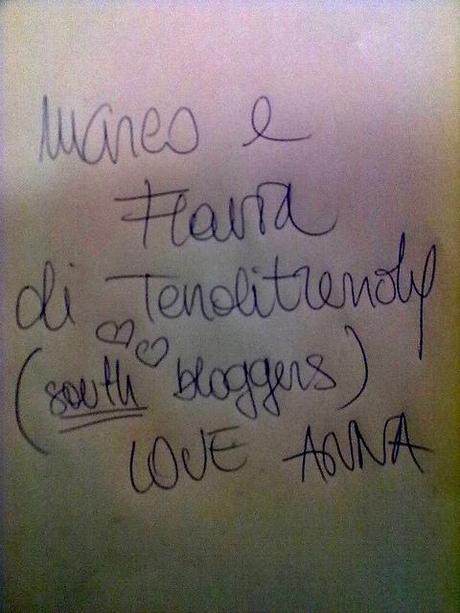 Marco e
Flavia
di Tenditrendy
(south bloggers)
LOVE ANNA